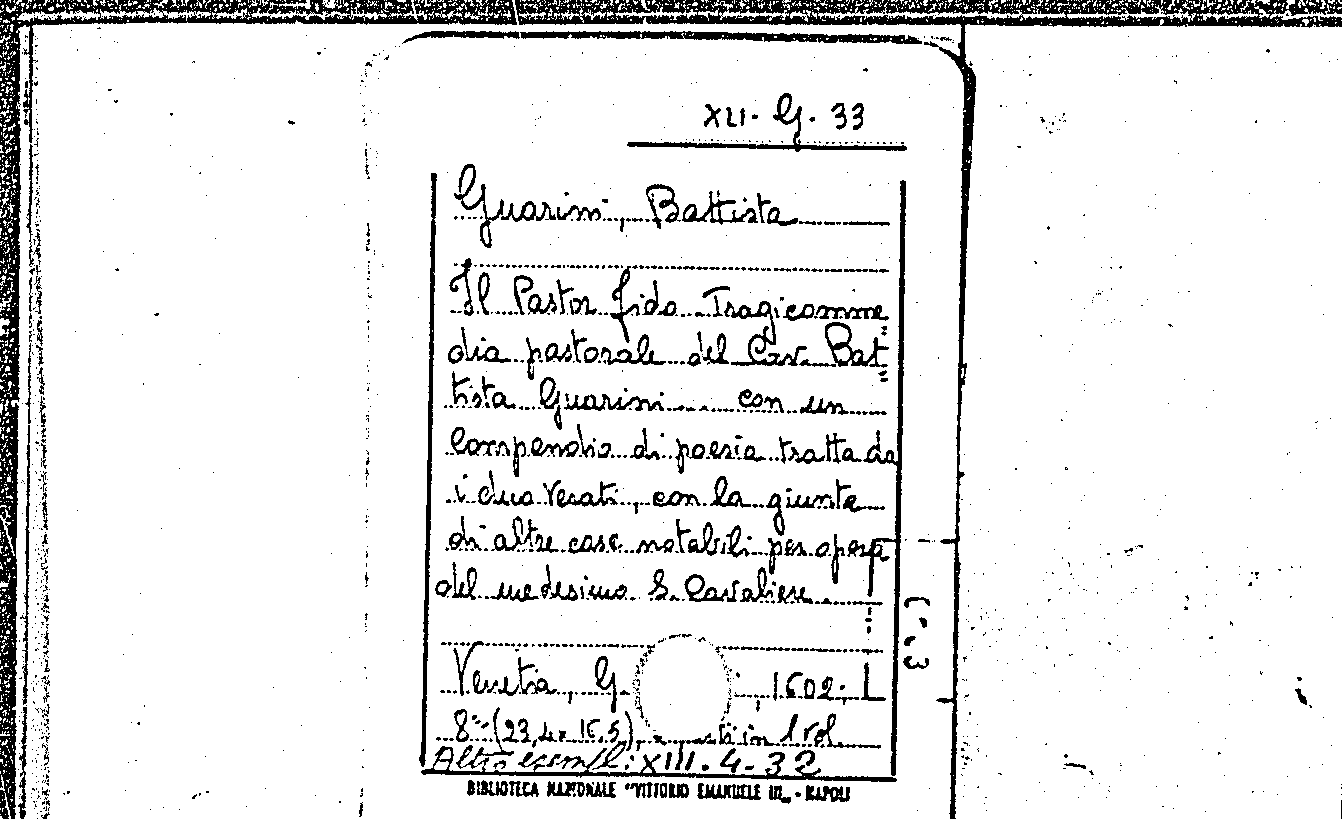 XLI. G. 33
Guarini, Battista
Il Pastor fido Tragicomme=
dia pastorale del Cav. Bat=
tista Guarini ... con un
compendio di poesia tratta da
i duo Verati, con la giunta
di altre cose notabili per opera
del medesimo S. Cavaliere.
Venetia, G. , 1602.
8° (23,4x 16.5), in 1 vol.
Altro esempl.: XIII. 4. 32
BIBLIOTECA NAZIONALE "VITTORIO EMANUELE III„ - NAPOLI